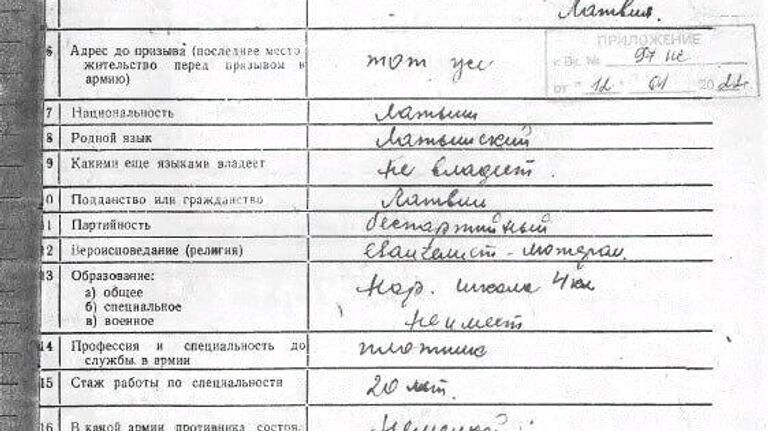 Латвия.
6 Адрес до призыва (последнее место жительство перед призывом в армию) тот же
ПРИЛОЖЕНИЕ
к Вх. № 97 нс
от "12" 01 20
7 Национальность Латыш
8 Родной язык Латышский
9 Какими еще языками владеет не владеет.
10 Подданство или гражданство Латвии
11 Партийность беспартийный
12 Вероисповедание (религия) евангелист-лютеран.
13 Образование:
а) общее Нар. школа 4 кл
б) специальное
в) военное не имеет
14 Профессия и специальность до службы в армии плотник
15 Стаж работы по специальности 20 лет.
16 В какой армии противника состоя. Немецкой